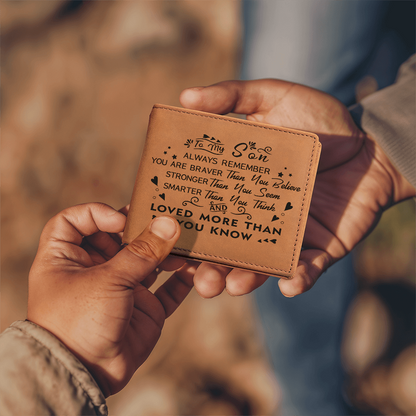 To My Son
ALWAYS REMEMBER
YOU ARE BRAVER Than You Believe
STRONGER Than You Seem
SMARTER Than You Think
AND
LOVED MORE THAN
YOU KNOW